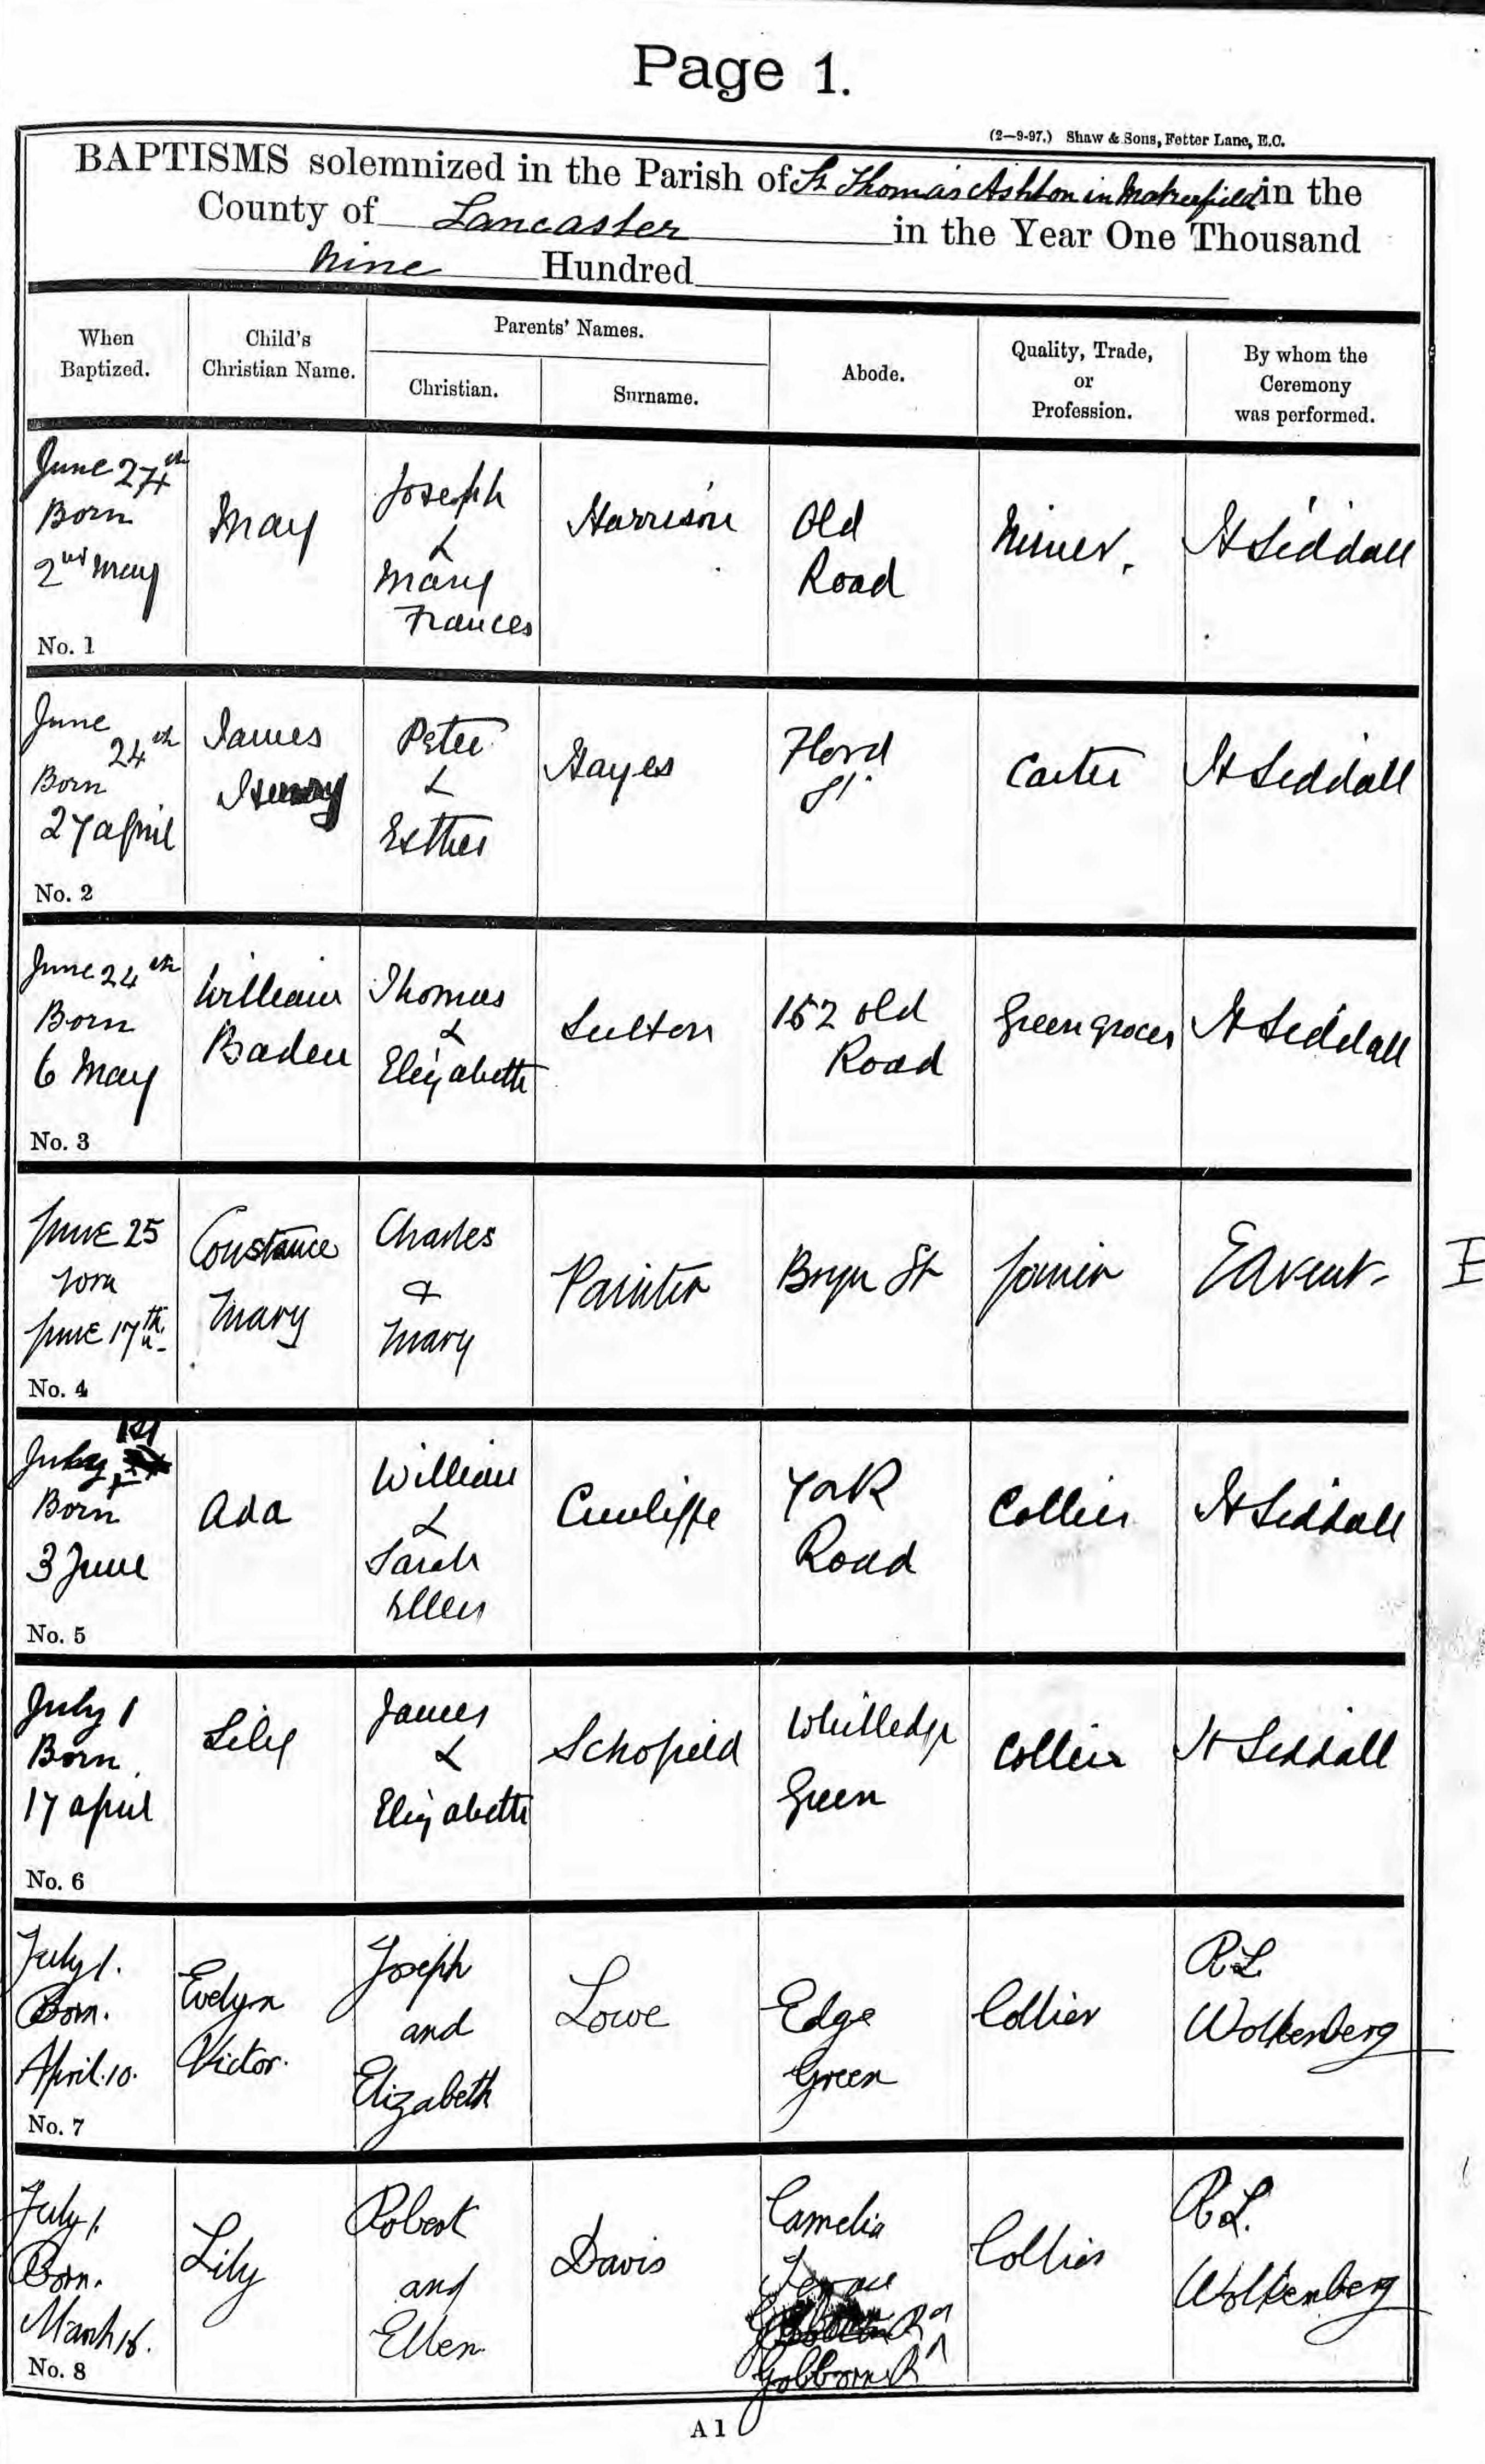 Page 1.
(2—9-97.) Shaw & Sons, Fetter Lane, E.C.
BAPTISMS solemnized in the Parish of St Thomas Ashton in Makerfield in the
County of Lancaster in the Year One Thousand
Nine Hundred
When Baptized.
Child's Christian Name.
Parents' Names.
Christian.
Surname.
Abode.
Quality, Trade, or Profession.
By whom the Ceremony was performed.
June 24th
Born
2nd May
No. 1
May
Joseph
&
Mary
Frances
Harrison
Old
Road
Miner.
H Siddall
June
24th
Born
27 April
No. 2
James
Henry
Peter
&
Esther
Hayes
St.
Carter
H Siddall
June 24th
Born
6 May
No. 3
William
Baden
Thomas
&
Elizabeth
Sutton
152 Old
Road
Greengrocer
H Siddall
June 25
born
June 17th
No. 4
Constance
Mary
Charles
&
Mary
Painter
Bryn St
Joiner
E Avent
July 1st
Born
3 June
No. 5
Ada
William
&
Sarah
Ellen
Cunliffe
York
Road
Collier
H Siddall
July 1
Born
17 April
No. 6
Lily
James
&
Elizabeth
Schofield
Whitledge
Green
Collier
H Siddall
July 1.
Born.
April 10.
No. 7
Evelyn
Victor.
Joseph
and
Elizabeth
Lowe
Edge
Green
Collier
R L
Wolkenberg
July 1.
Born.
March 16.
No. 8
Lily
Robert
and
Ellen
Davis
Camelia
Terrace
Golborne Rd
Collier
R L.
Wolkenberg
A 1